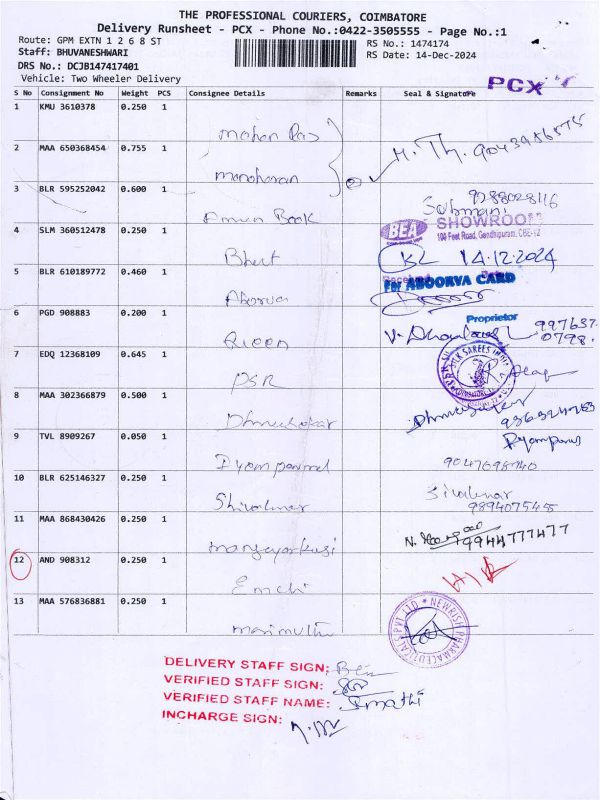 THE PROFESSIONAL COURIERS, COIMBATORE
Delivery Runsheet - PCX - Phone No.:0422-3505555 - Page No.:1
Route: GPM EXTN 1 2 6 8 ST
RS No.: 1474174
Staff: BHUVANESHWARI
RS Date: 14-Dec-2024
DRS No.: DCJB147417401
Vehicle: Two Wheeler Delivery
PCX
S No Consignment No Weight PCS Consignee Details Remarks Seal & Signature
1 KMU 3610378 0.250 1
mohan Raj
2 MAA 650368454 0.755 1
manoharan
3 BLR 595252042 0.600 1
Amun Book
4 SLM 360512478 0.250 1
BEA SHOWROOM
100 Feet Road, Gandhipuram, CBE-12
Bhut
14.12.2024
5 BLR 610189772 0.460 1
For ABOORVA CARD
Aborva
6 PGD 908883 0.200 1
Proprietor
Queen
7 EDQ 12368109 0.645 1
PSR
8 MAA 302366879 0.500 1
9 TVL 8909267 0.050 1
10 BLR 625146327 0.250 1
Sivakumar
11 MAA 868430426 0.250 1
12 AND 908312 0.250 1
Emchi
13 MAA 576836881 0.250 1
marimuthu
NEWRISE PHARMACEUTICALS PVT LTD
DELIVERY STAFF SIGN:
VERIFIED STAFF SIGN:
VERIFIED STAFF NAME: Sumathi
INCHARGE SIGN: